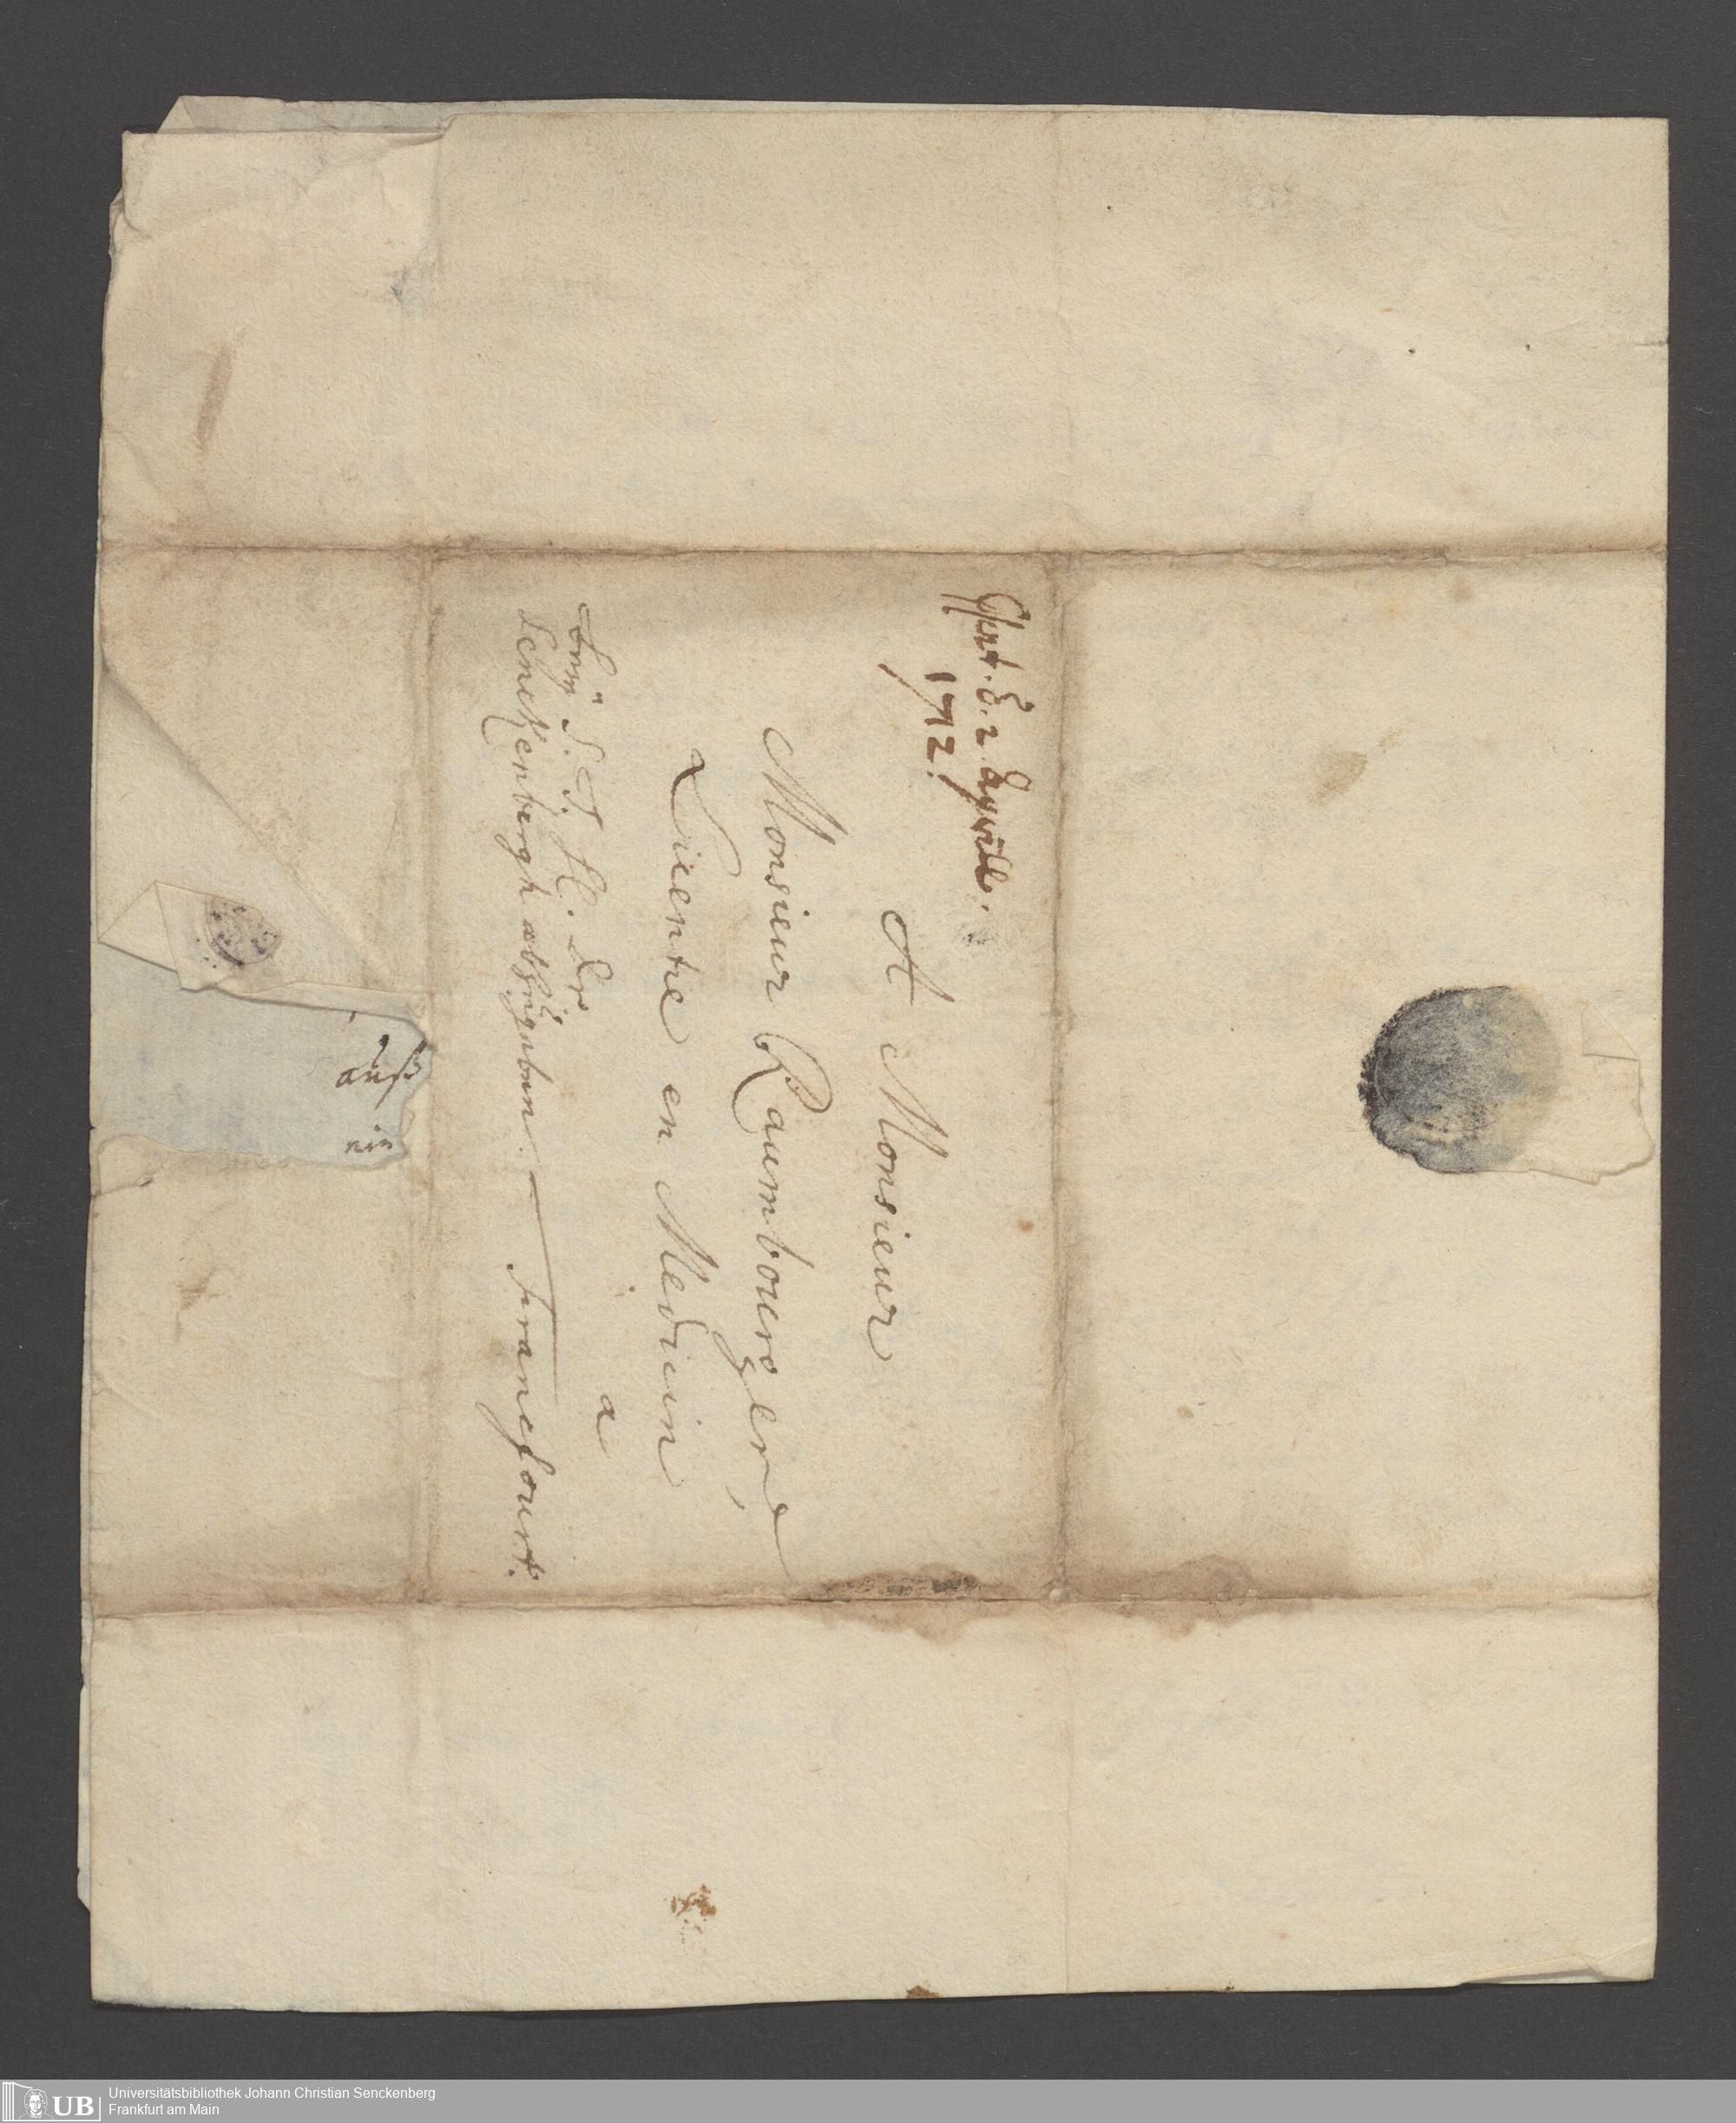 d. 2. Aprill.
1712.
A Monsieur
Monsieur Raumbourger,
Licentie en Medicin
a
Francfourt.
beÿ S. T. H. Dr
Senckenbergh abzugeben.
auß
ein
UB
Universitätsbibliothek Johann Christian Senckenberg
Frankfurt am Main